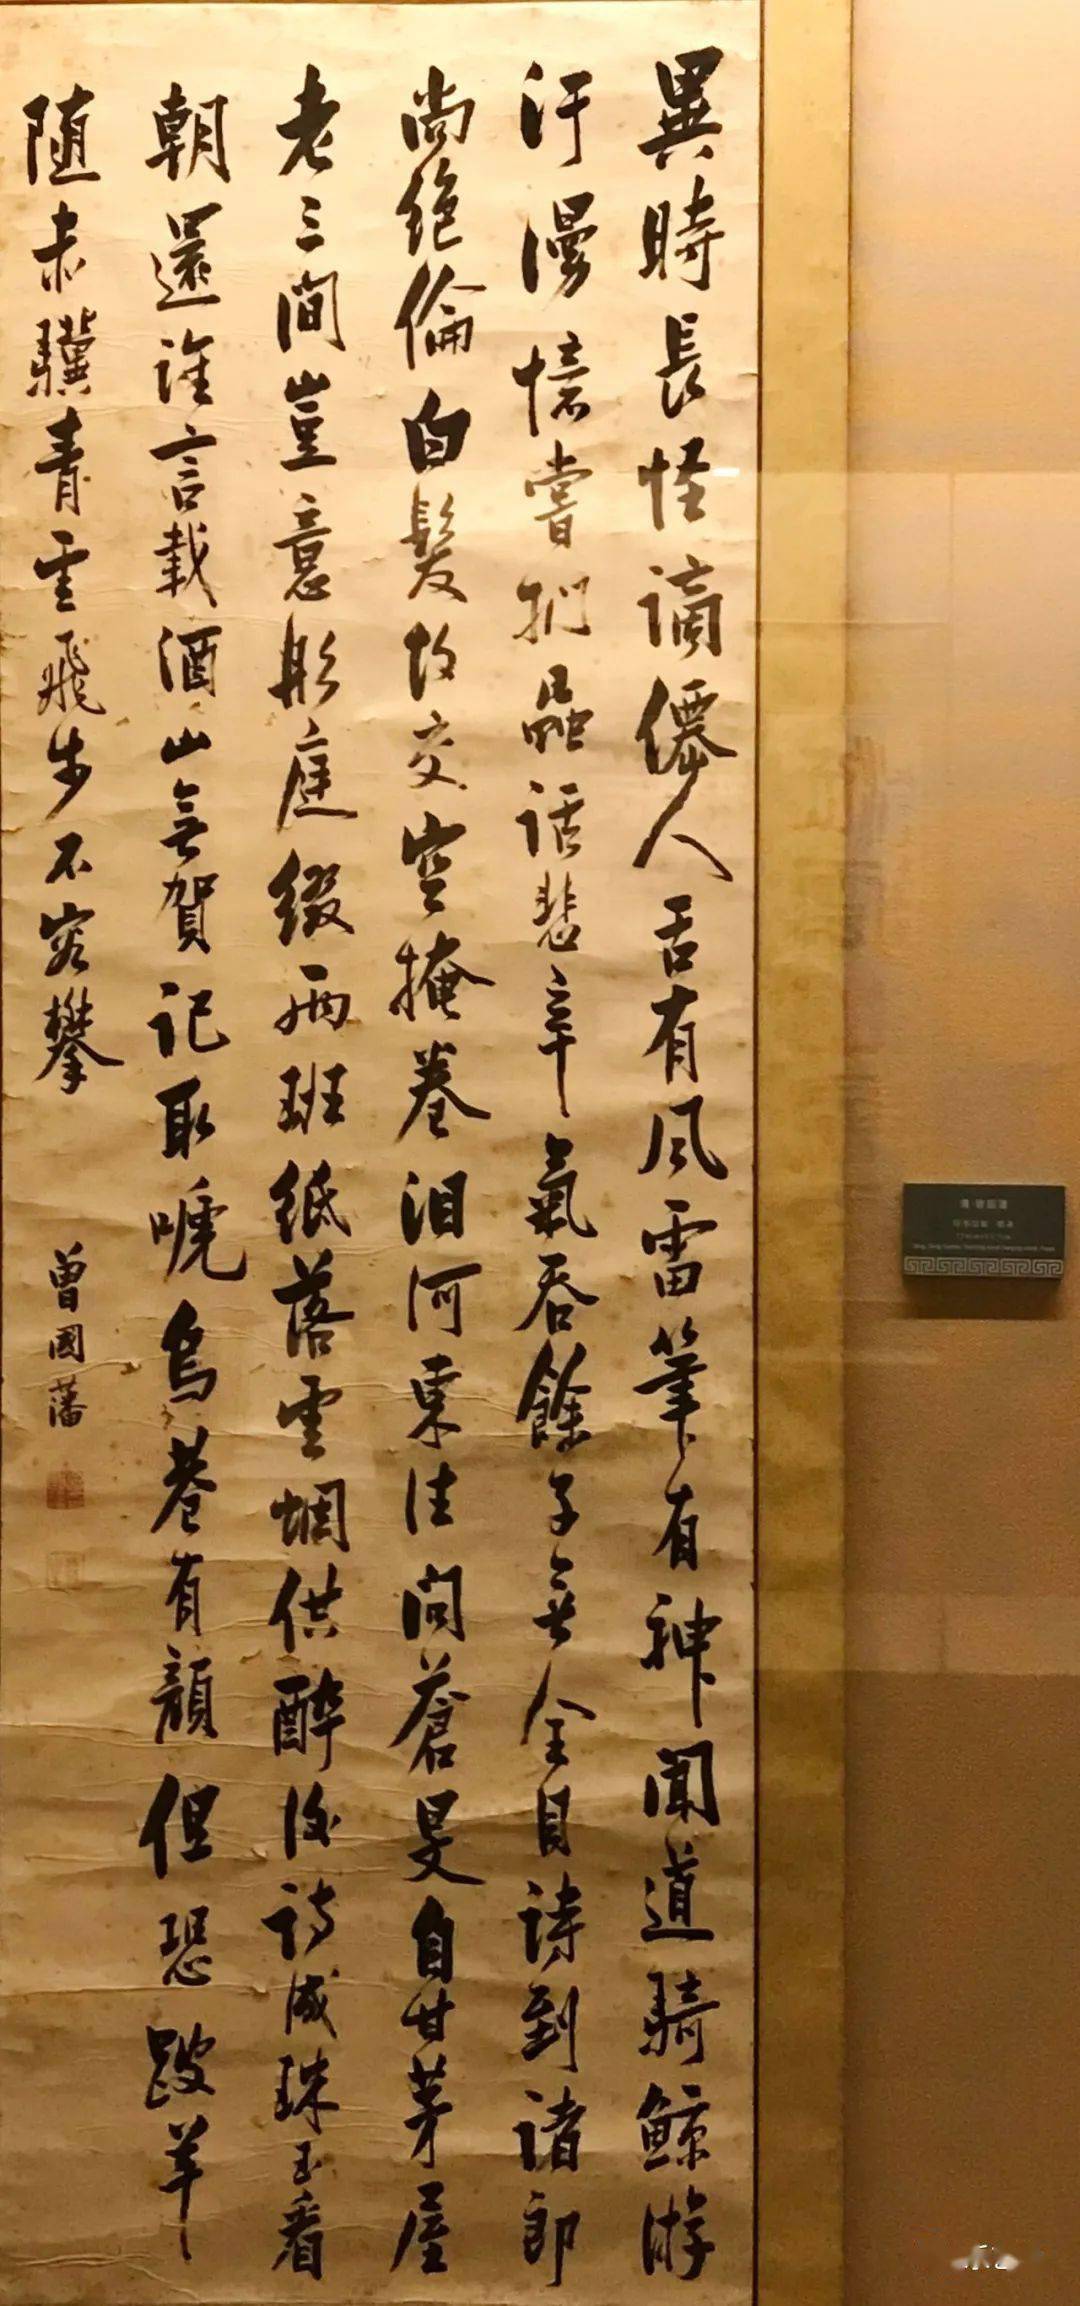 異時長怪謫僊人舌有風雷筆有神聞道騎鯨游
汗漫憶嘗捫蝨話悲辛氣吞餘子無全目詩到諸郎
尚絶倫白髮故交空掩卷淚河東注問蒼旻自甘茅屋
老三間豈意彤庭綴兩班紙落雲烟供醉後詩成珠玉看
朝還誰言載酒山無賀記取啼烏巷有顔但恐跛羊
隨赤驥青雲飛步不容攀
曾國藩